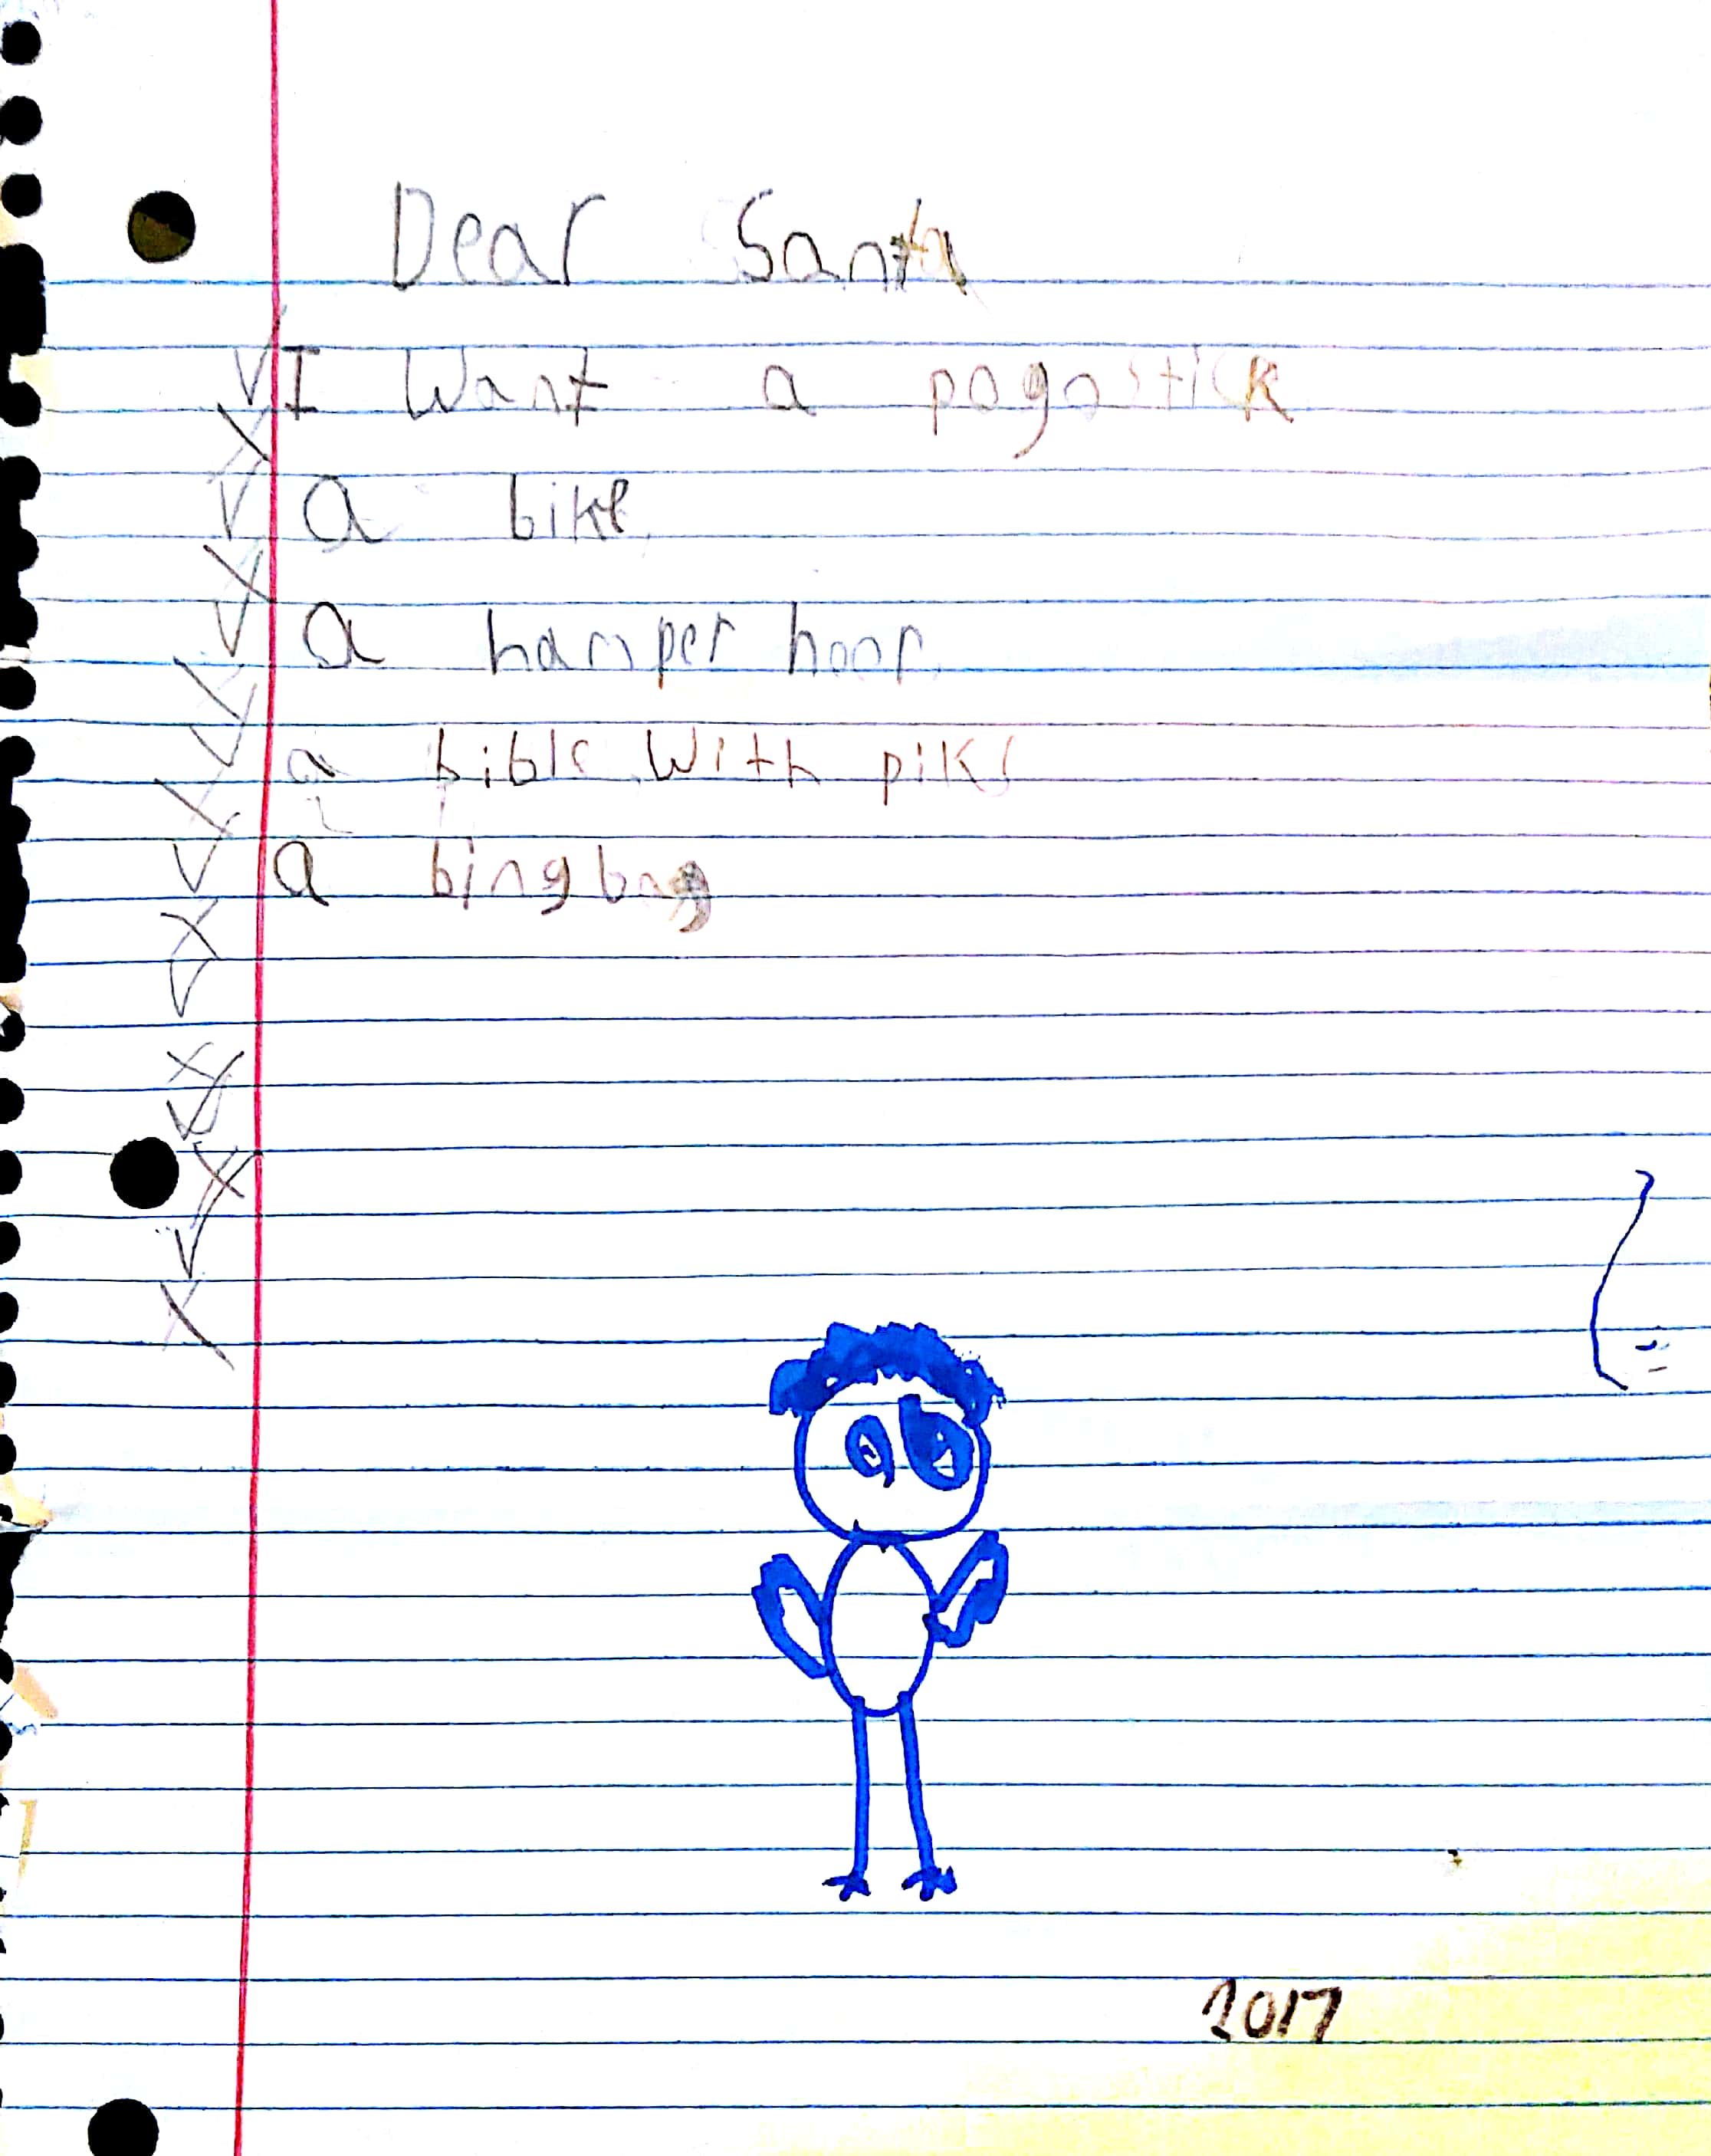 Dear Santa
I Want a pogostick
a bike
a hamper hoop
a bible With piks
a bingbag
2017